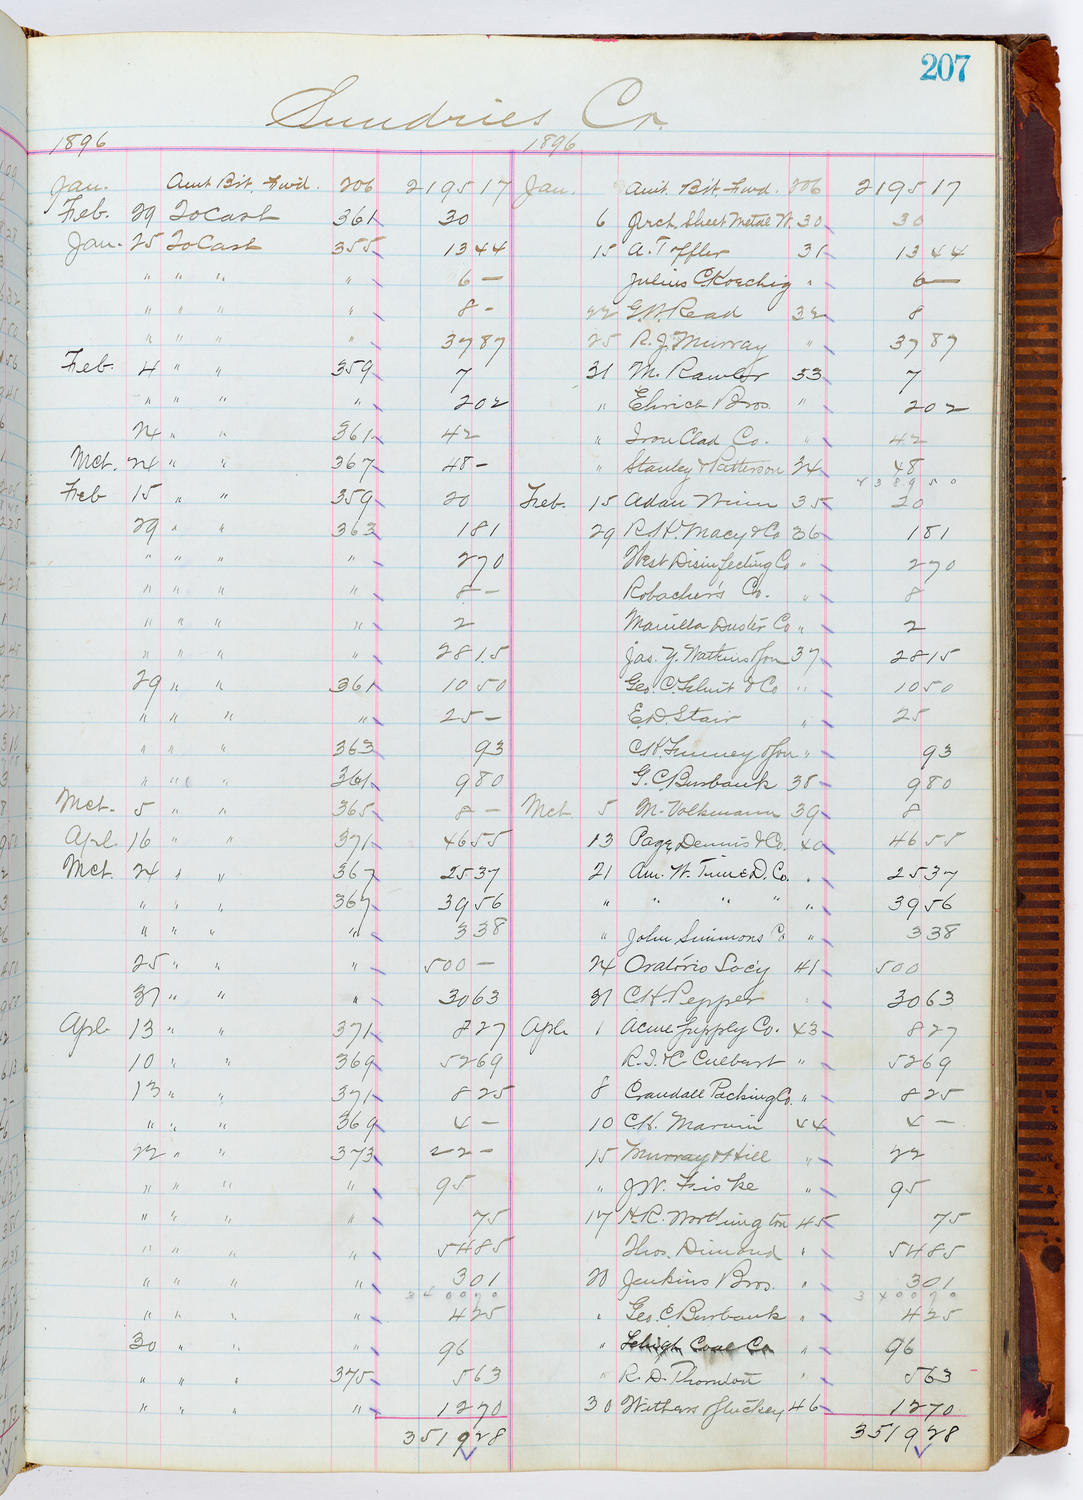 207
Sundries Cr.
1896 1896
Jan. Amt Bŕt. Fwd. 206 2195 17 Jan. Amt. Bŕt. Fwd. 206 2195 17
Feb. 29 To Cash 361 30 6 Arch. Sheet Metal W. 30 30
Jan. 25 To Cash 355 13 44 15 A. Toffler 31 13 44
" " " " 6 — Julius C. Koechig " 6 —
" " " " 8 - 22 G.W. Read 32 8
" " " " 37 87 25 R. J. Murray " 37 87
Feb. 4 " " 359 7 31 M. Rawler 33 7
" " " " 2 02 " Ehrich Bros. " 2 02
24 " " 361 42 " Iron Clad Co. " 42
Mch. 24 " " 367 48 - " Stanley & Patterson 34 48
2389 50
Feb 15 " " 359 20 Feb. 15 Adan Winn 35 20
29 " " 363 1 81 29 R.H. Macy & Co 36 1 81
" " " " 2 70 West Disinfecting Co " 2 70
" " " " 8 — Robacher's Co. " 8
" " " " 2 Manilla Duster Co " 2
" " " " 28 15 Jas. Y. Watkins & Son 37 28 15
29 " " 361 10 50 Geo. C. Flint & Co " 10 50
" " " " 25 — E.D. Stair " 25
" " " 363 93 C.H. Finney & Son " 93
" " " 361 9 80 G. C. Burbank 38 9 80
Mch. 5 " " 365 8 — Mch 5 M. Volkmann 39 8
Apl. 16 " " 371 46 55 13 Page, Dennis & Co. 40 46 55
Mch. 24 " " 367 25 37 21 Am. W. Time D. Co. " 25 37
" " " 367 39 56 " " " " " 39 56
" " " " 3 38 " John Simmons Co " 3 38
25 " " " 500 — 24 Oratorio Soc'y 41 500
31 " " " 30 63 31 C.H. Pepper " 30 63
Apl. 13 " " 371 8 27 Apl. 1 Acme Supply Co. 43 8 27
10 " " 369 52 69 R. I. & C. Culbert " 52 69
13 " " 371 8 25 8 Crandall Packing Co. " 8 25
" " " 369 4 — 10 C.H. Marvin 44 4 —
22 " " 373 22 - 15 Murray & Hill " 22
" " " " 95 " J.W. Fiske " 95
" " " " 75 17 H.R. Worthington 45 75
" " " " 54 85 Thos. Dimond " 54 85
" " " " 3 01 20 Jenkins Bros. " 3 01
3400 70 3400 70
" " " " 4 25 " Geo. C. Burbank " 4 25
30 " " " 96 " Lehigh Coal Co " 96
" " " 375 5 63 " R. D. Thornton " 5 63
" " " " 12 70 30 46 12 70
3519 28 3519 28